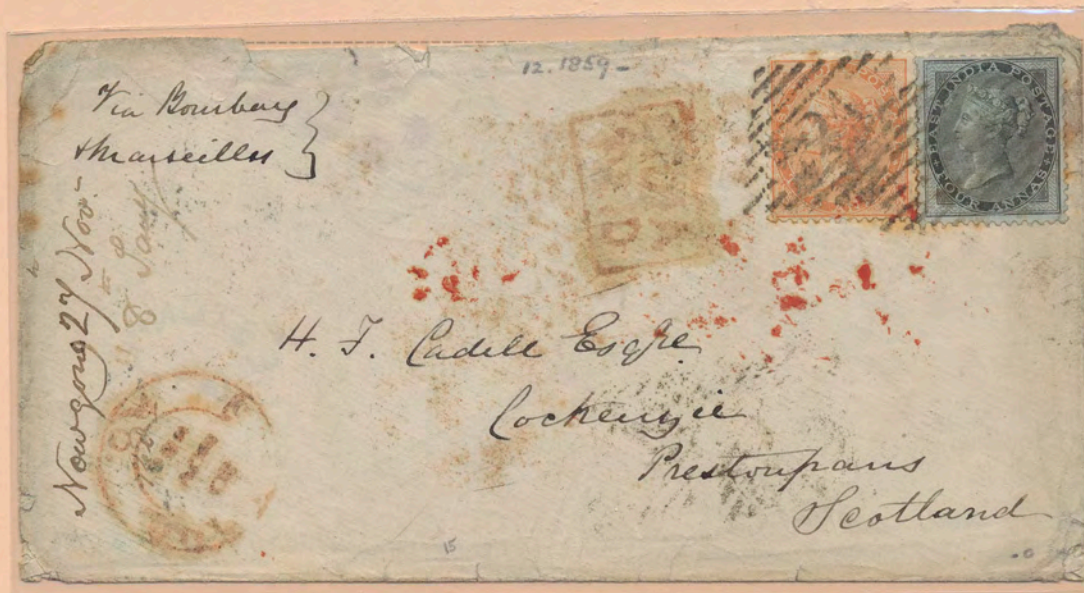 12. 1859 -
Via Bombay
& Marseilles
EAST INDIA POSTAGE
FOUR ANNAS
Nowgong 27 Nov -
H. F. Cadell Esqre
Cockenzie
Prestonpans
Scotland
15